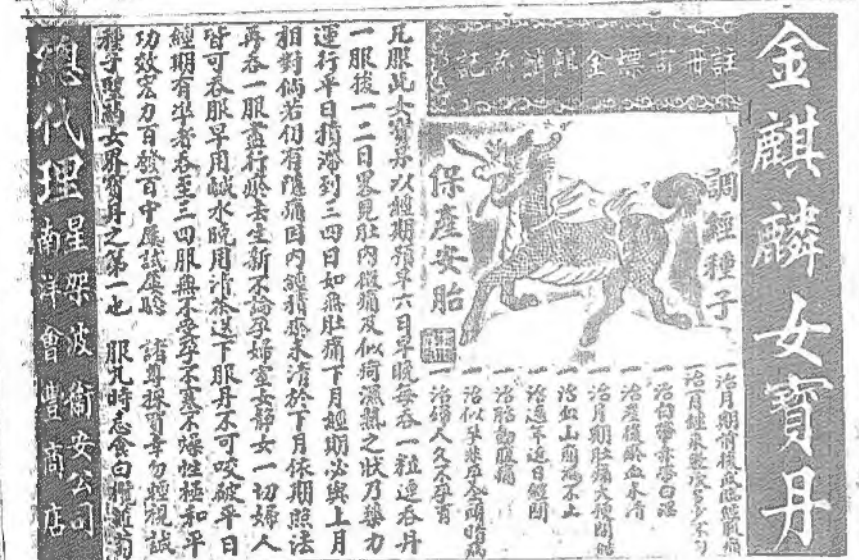 金麒麟女寶丹
註冊商標金麒麟為記
調經種子
保產安胎
一治月期前後
一治月經來
一治白帶赤帶白淫
一治產後瘀血未清
一治月期肚痛大便閉結
一治血山崩漏不止
一治過年近日經閉
一治胎動腹痛
一治似孕非孕
一治婦人久不孕育
凡服此女寶丹以經期預早六日早晚每吞一粒連吞丹
一服後一二日畧見肚內微痛及似痾濕熱之狀乃藥力
運行平日積滯到三四日如無肚痛下月經期必與上月
相對倘若仍有隱痛因內經積瘀未清於下月依期照法
再吞一服盡行瘀去生新不論孕婦室女靜女一切婦人
皆可吞服早用鹹水晚用清茶送下服丹不可咬破平日
經期有準者吞至三四服無不受孕不寒不燥性極和平
功效宏力百發百中屢試屢驗 諸尊採買幸勿輕視誠
種子聖藥女界寶丹之第一也 服凡時忌食白欖
總代理
星架波衞安公司
南洋會豐商店